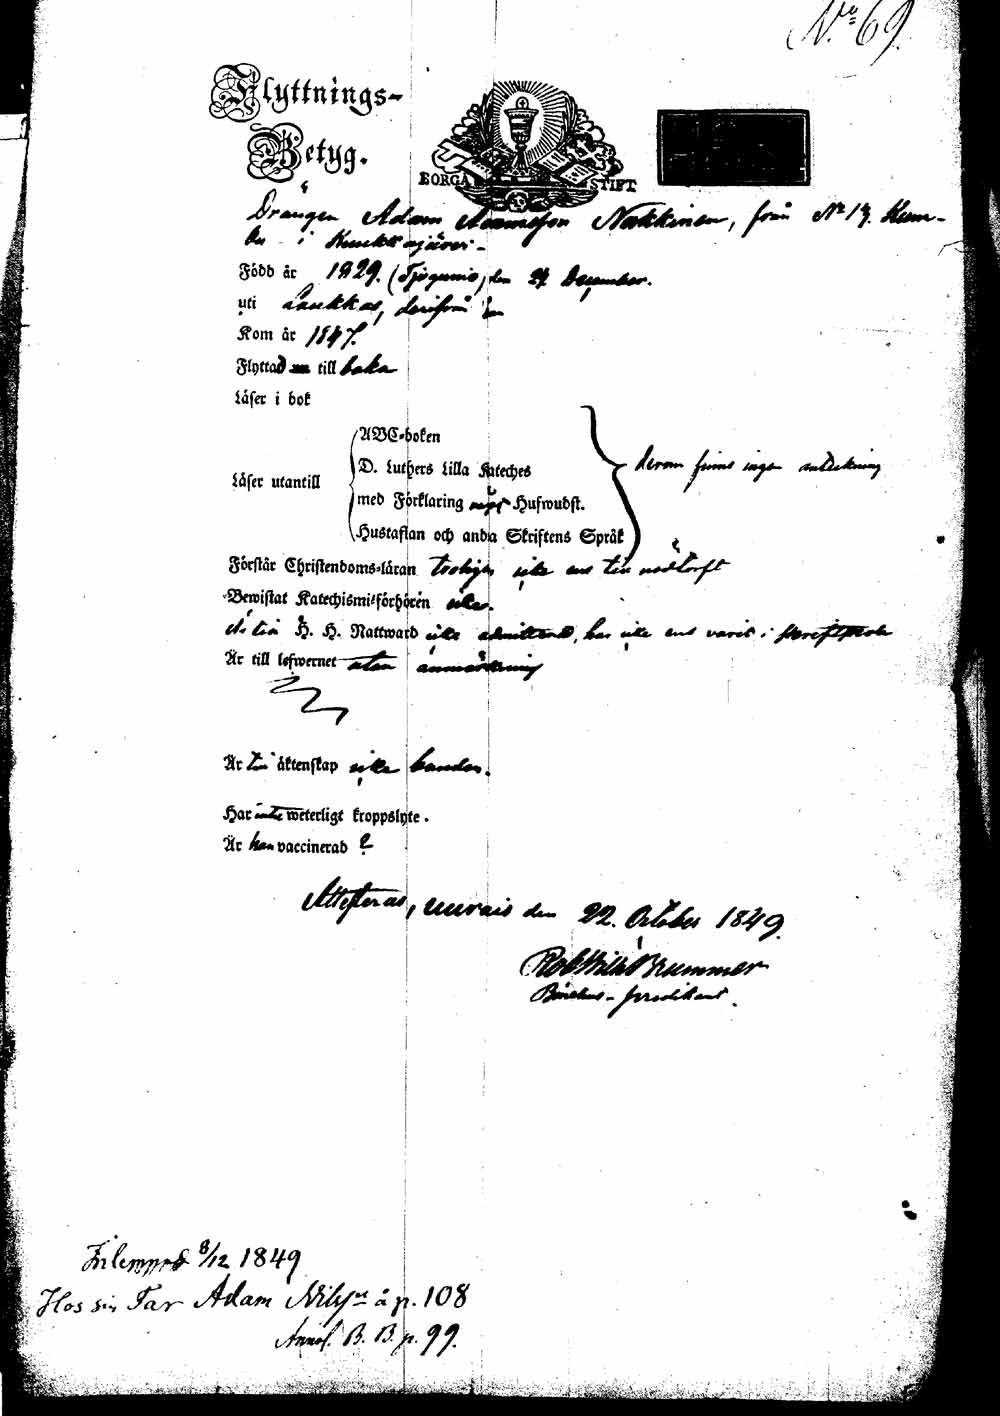 No 69.
Flyttnings-
Betyg.
BORGÅ STIFT
Drängen Adam Adamsson Nakkinen, från No 17. Kum-
bu i
Född år 1829. (Tjugunio) den 24 December.
uti Laukkas, derifrån
Kom år 1847.
Flyttad till baka
Läser i bok
Läser utantill
ABC-boken
D. Luthers Lilla Kateches
med Förklaring Hufwudst.
Hustaflan och andra Skriftens Språk
derom finns ingen anteckning
Förstår Christendoms-läran troligen icke ens till nödtorft
Bewistat Katechismi-förhören icke.
Är till H. H. Nattward icke admitterad, har icke ens varit i skriftskola
Är till lefwernet utan anmärkning
Är till äktenskap icke bunden.
Har intet weterligt kroppslyte.
Är han vaccinerad ?
Attesteras, den 22. October 1849.
Rob Wilh Brummer
predikant.
Inlemnad 8/12 1849
Hos sin Far Adam Nilsson å p. 108
Annot. B. B. p. 99.